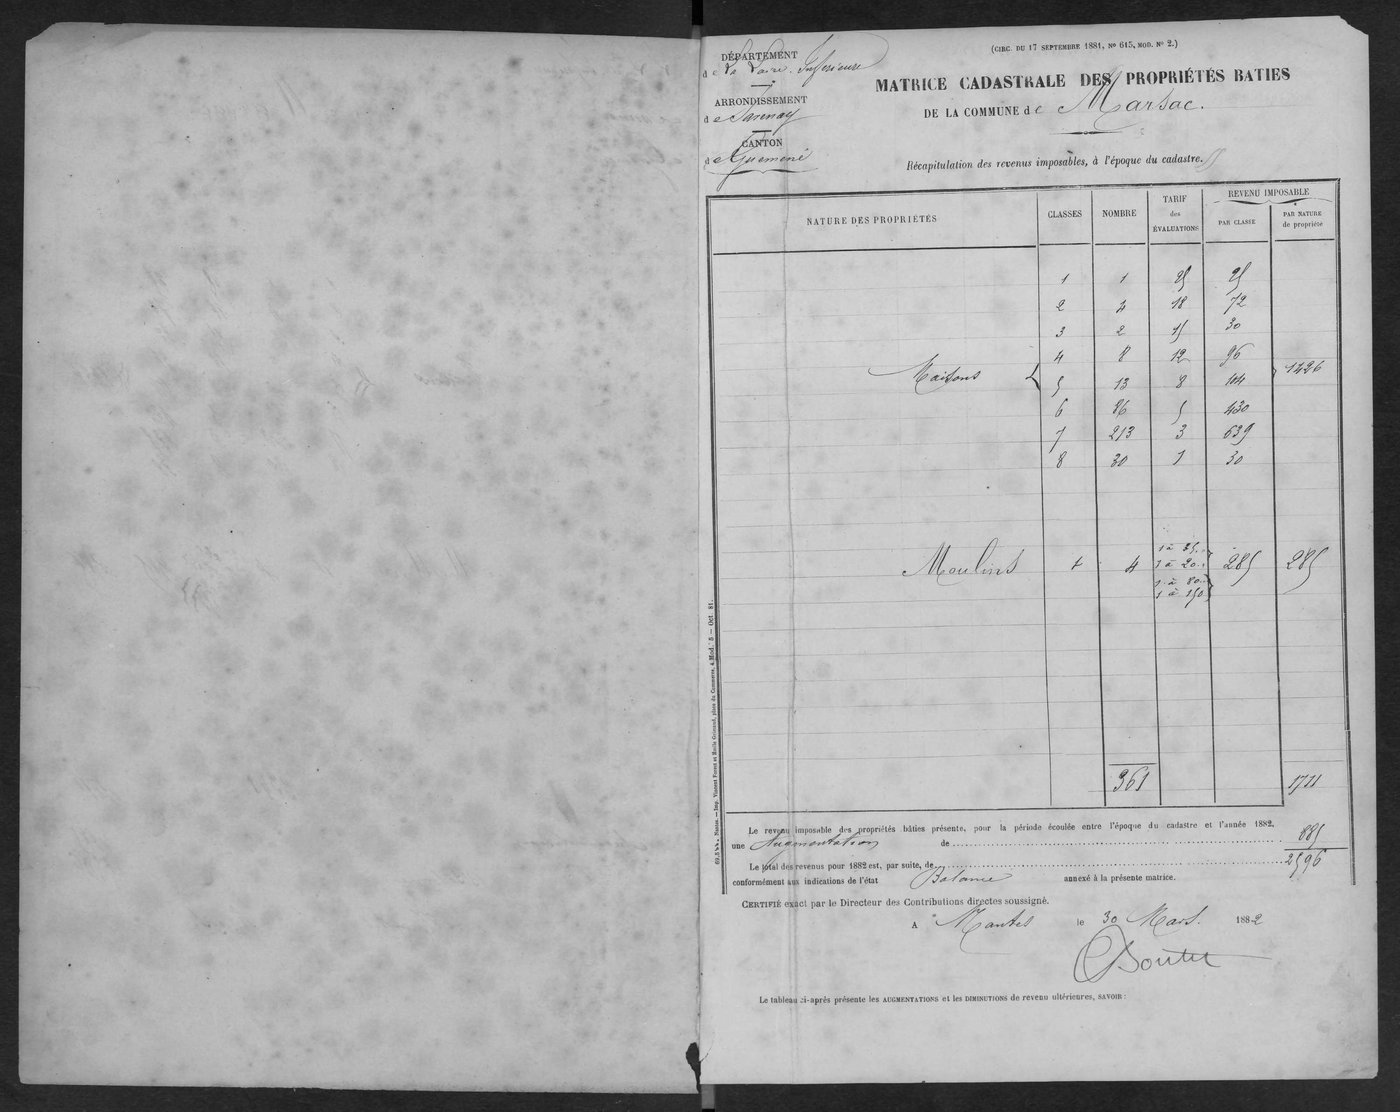 (CIRC. DU 17 SEPTEMBRE 1881, No 615, MOD. No 2.)
DÉPARTEMENT
de La Loire-Inférieure
ARRONDISSEMENT
de Savenay
CANTON
de Guémené
MATRICE CADASTRALE DES PROPRIÉTÉS BATIES
DE LA COMMUNE de Marsac.
Récapitulation des revenus imposables, à l'époque du cadastre.
NATURE DES PROPRIÉTÉS CLASSES NOMBRE TARIF des ÉVALUATIONS REVENU IMPOSABLE
PAR CLASSE PAR NATURE de propriété
1 1 25 25
2 4 18 72
3 2 15 30
4 8 12 96
Maisons 5 13 8 104 1426
6 86 5 430
7 213 3 639
8 30 1 30
1 à 35
Moulins + 4 1 à 20 285 285
1 à 80
1 à 150
361 1711
69,544. Nantes. — Imp. Vincent Forest et Emile Grimaud, place du Commerce, 4. Mod. 5 — Oct. 81.
Le revenu imposable des propriétés bâties présente, pour la période écoulée entre l'époque du cadastre et l'année 1882,
une Augmentation de 885
Le total des revenus pour 1882 est, par suite, de 2596
conformément aux indications de l'état Balance annexé à la présente matrice.
CERTIFIÉ exact par le Directeur des Contributions directes soussigné.
A Nantes le 30 Mars 1882
Le tableau ci-après présente les AUGMENTATIONS et les DIMINUTIONS de revenu ultérieures, SAVOIR :